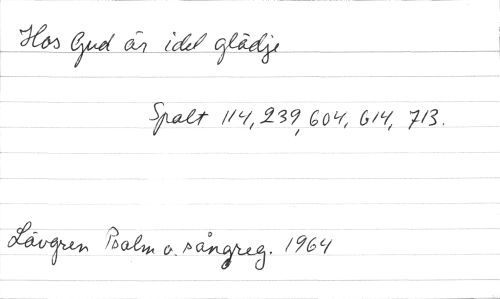 Hos Gud är idel glädje
Spalt 114, 239, 604, 614, 713.
Lövgren Psalm o. sångreg. 1964